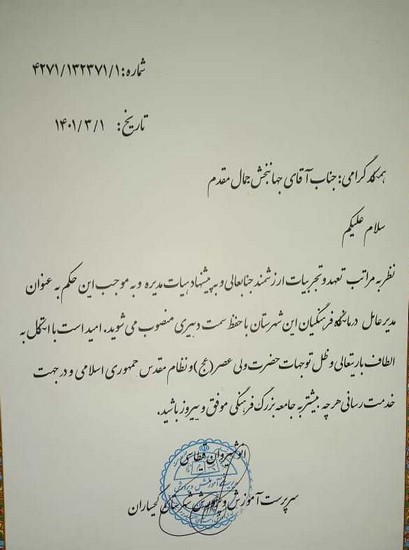 شماره: ۴۲۷۱/۱۳۲۳۷۱/۱
تاریخ: ۱۴۰۱/۳/۱
همکار گرامی: جناب آقای جهانبخش جمال مقدم
سلام علیکم
نظر به مراتب تعهد و تجربیات ارزشمند جنابعالی و به پیشنهاد هیات مدیره و به موجب این حکم به عنوان
مدیر عامل درمانگاه فرهنگیان این شهرستان با حفظ سمت دبیری منصوب می شوید. امید است با اتکال به
الطاف باریتعالی و ظل توجهات حضرت ولی عصر (عج) و نظام مقدس جمهوری اسلامی و در جهت
خدمت رسانی هر چه بیشتر به جامعه بزرگ فرهنگی موفق و پیروز باشید.
انوشیروان قیطاسی
سرپرست آموزش و پرورش شهرستان گچساران